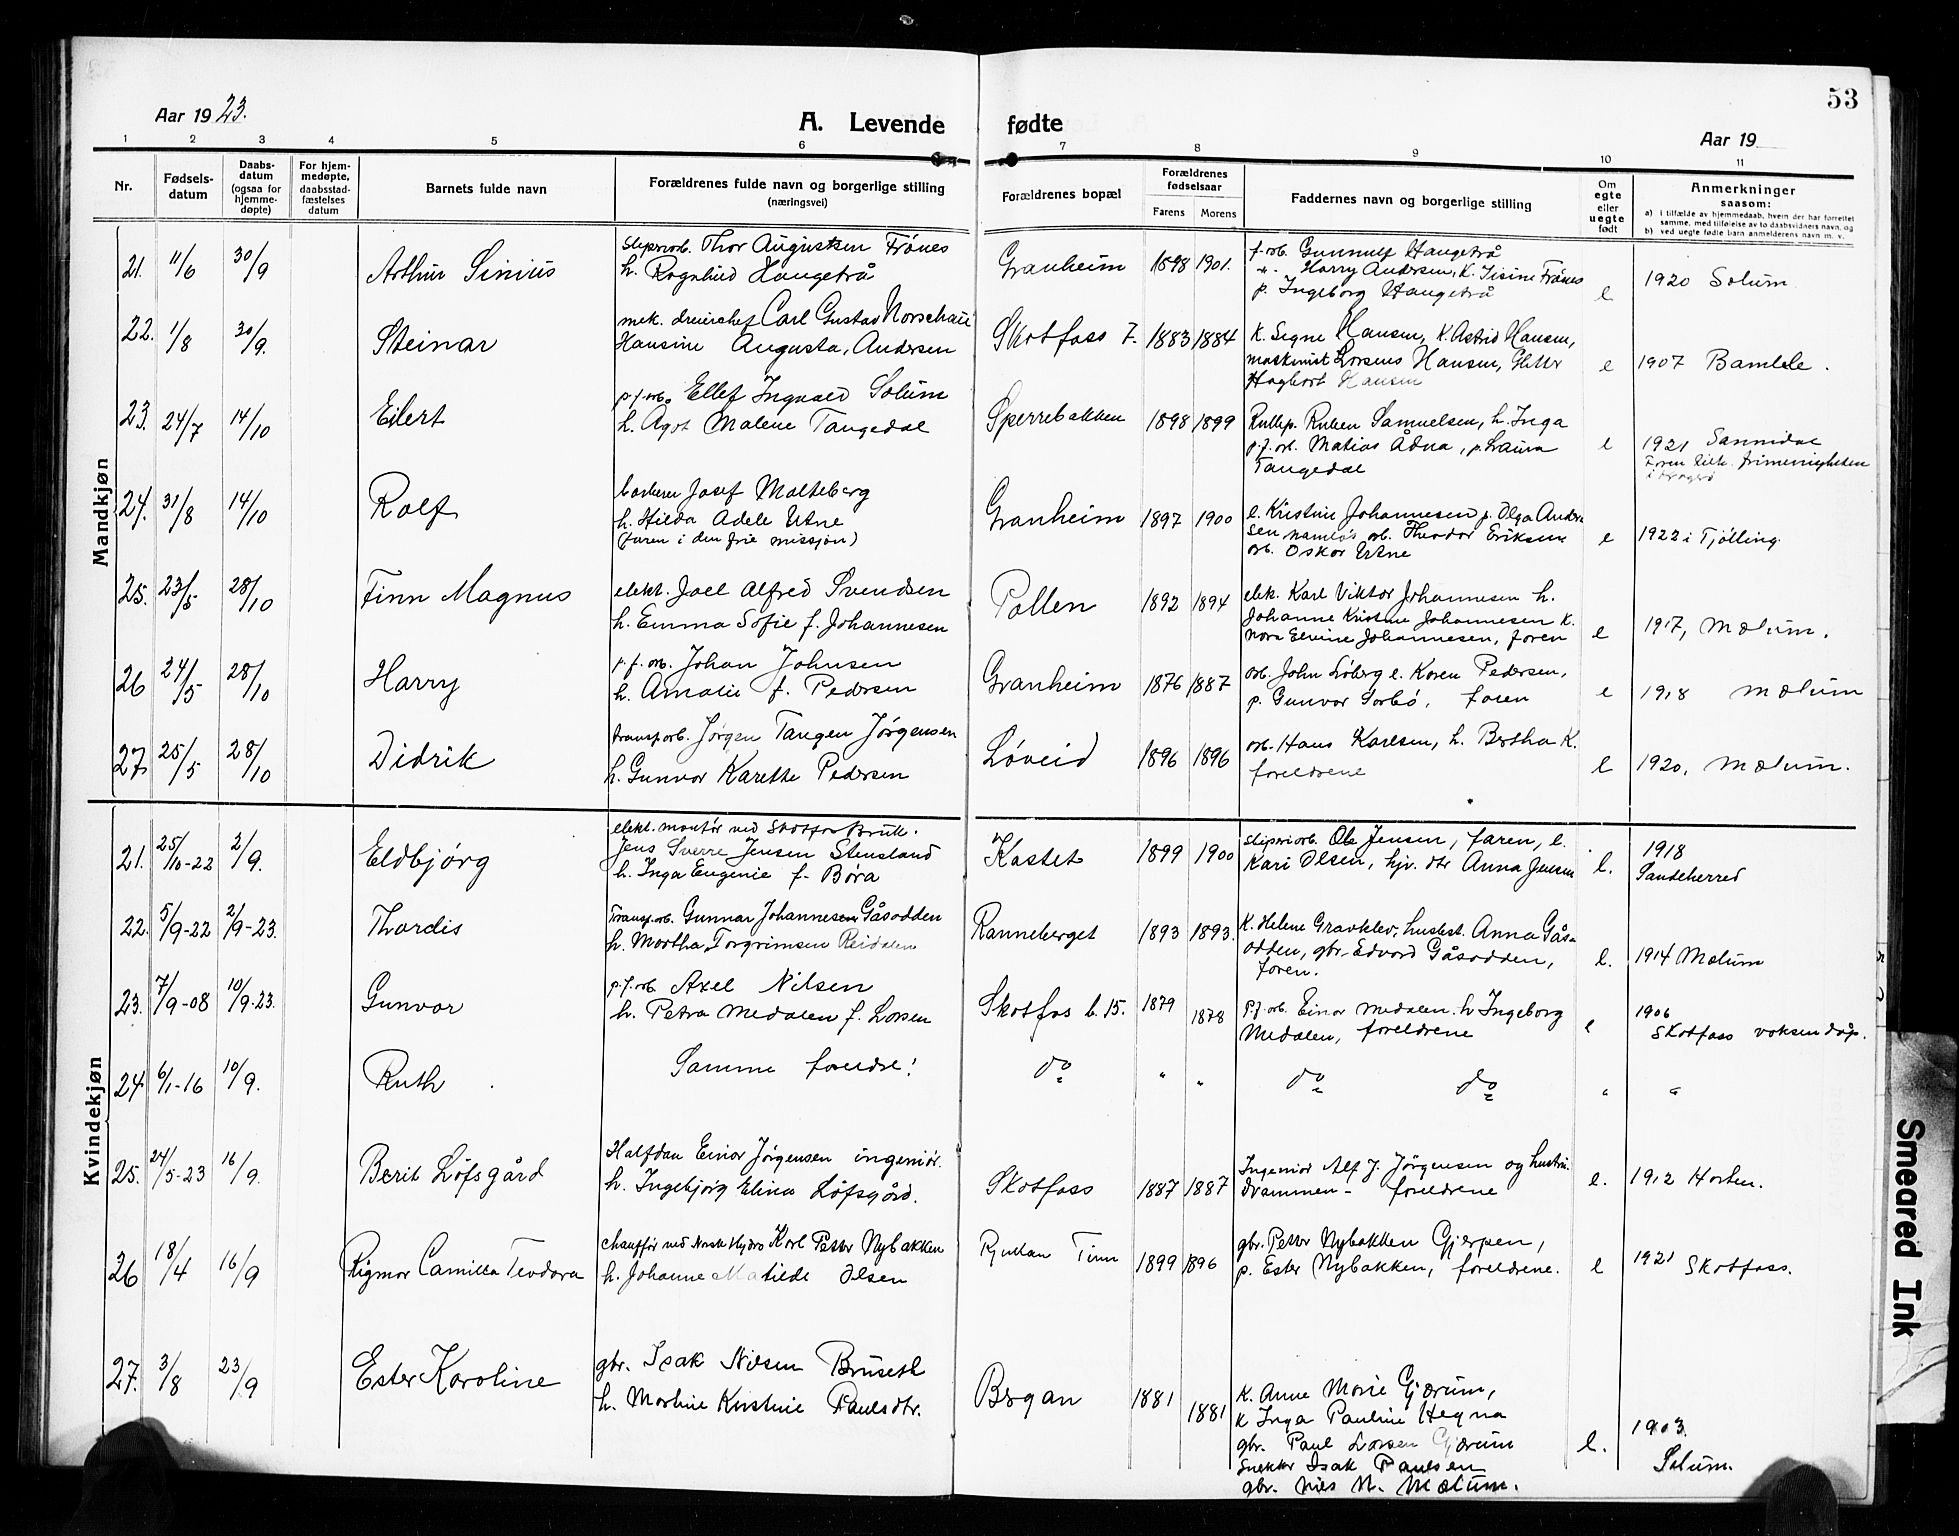 53
Aar 1923.
A. Levende fødte
Aar 19
1 2 3 4 5 6 7 8 9 10 11
Nr.
Fødsels-
datum
Daabs-
datum
(ogsaa for
hjemme-
døpte)
For hjem-
medøpte,
daabsstad-
fæstelses
datum
Barnets fulde navn
Forældrenes fulde navn og borgerlige stilling
(næringsvei)
Forældrenes bopæl
Forældrenes
fødselsaar
Farens Morens
Faddernes navn og borgerlige stilling
Om
egte
eller
uegte
født
Anmerkninger
saasom:
a) i tilfælde av hjemmedaab, hvem der har forrettet
samme, med tilføielse av to daabsvidners navn, og
b) ved uegte fødte barn anmelderens navn m. v.
Mandkjøn
21. 11/6 30/9 Arthur Sinius
Sliperiarb. Thor Augustsen Frönes
h. Ragnhild Haugetrå
Granheim 1898 1901.
f. arb. Gunnulf Haugetrå
Harry Andersen, K. Jisine Frönes
p. Ingeborg Haugetrå
e 1920 Solum
22. 1/8 30/9. Steinar
mek. dreierchef Carl Gustav Norschau
Hansine Augusta, Andersen
Skotfoss 7. 1883 1884
K. Signe Hansen, K. Astrid Hansen,
maskinist Lorens Hansen,
Hagbart Hansen
e 1907 Bamble.
23. 24/7 14/10 Eilert
p.f. arb. Ellef Ingvald Solum
h. Agot Malene Tangedal
Sperrebakken 1898 1899
Rullep. Ruben Samuelsen, h. Inga
p.f. arb. Matias Ådna, p. Laura
Tangedal
e 1921 Sannidal
i Kragerö
24. 31/8 14/10 Rolf
barberer Josef Molteberg
h. Hilda Adele Utne
(faren i den frie missjon)
Granheim 1897 1900
e. Kristine Johannesen p. Olga Ander
sen namløs arb. Theodor Eriksen
arb. Oskar Utne
e 1922 i Tjölling.
25. 23/5 28/10 Finn Magnus
elekt. Joel Alfred Svendsen
h. Emma Sofie f. Johannesen
Pollen 1892 1894
elek. Karl Viktor Johannesen h.
Johanne Kristine Johannesen K.
Nora Elvine Johannesen, faren
e 1917, Mælum.
26 24/5 28/10 Harry
p.f. arb. Johan Johnsen
h. Amalie f. Pedersen
Granheim 1876 1887
arb. John Löberg e. Karen Pedersen,
p. Gunvor Sorbö, faren
e 1918 Mælum
27. 25/5 28/10 Didrik
transp.arb. Jørgen Tangen Jørgensen
h. Gunvor Karette Pedersen
Løveid 1896 1896
arb. Hans Karlsen, h. Bertha K.
foreldrene
e 1920. Mælum.
Kvindekjøn
21. 25/10-22 2/9. Eldbjørg
elekt. montör ved Skotfos Bruk.
Jens Sverre Jensen Stensland
h. Inga Eugenie f. Børa
Kastet 1899 1900
Sliperiarb. Ole Jensen, faren, e.
Kari Olsen, hjv. dtr Anna Jensen
e. 1918
Sandeherred
22. 5/9-22 2/9-23. Thordis
Transp.arb. Gunnar Johannesen Gåsodden
h. Martha Torgrimsen Reidalen
Ranneberget 1893 1893.
K. Helene Gravklev, husbest. Anna Gås-
odden, gbr. Edvard Gåsodden,
faren.
e. 1914 Mælum
23. 7/9-08 10/9-23. Gunvor
p.f. arb Axel Nilsen
h. Petra Medalen f. Larsen
Skotfos b. 15. 1879 1878
p.f. arb. Einar Medalen. h Ingeborg
Medalen, foreldrene
e 1906
Skotfoss voksendåp.
24. 6/1-16 10/9. Ruth
Samme foreldre!
do " " do do " "
25. 24/5-23 16/9. Berit Løfsgård
Halfdan Einar Jørgensen ingeniör.
h. Ingebjørg Elina Løfsgård.
Skotfoss 1887 1887
Ingeniør Alf J. Jørgensen og hustru.
Drammen - foreldrene
e. 1912 Horten.
26 18/4 16/9 Rigmor Camilla Teodora
chauffør ved Norsk Hydro Karl Petter Nybakken
h. Johanne Matilde Olsen
Rjukan Tinn 1899 1896
gbr. Petter Nybakken Gjerpen,
p. Ester Nybakken, foreldrene.
e 1921 Skotfoss.
27. 3/8 23/9 Ester Karoline
gbr. Isak Nilsen Bruseth
h. Martine Kirstine Paulsdtr.
Bergan 1881 1881
K. Anne Marie Gjærum,
K Inga Pauline Hegna
gbr. Paul Larsen Gjærum
Snekker Isak Paulsen
gbr. Nils N. Mælum.
e. 1903.
Solum.
Smeared Ink